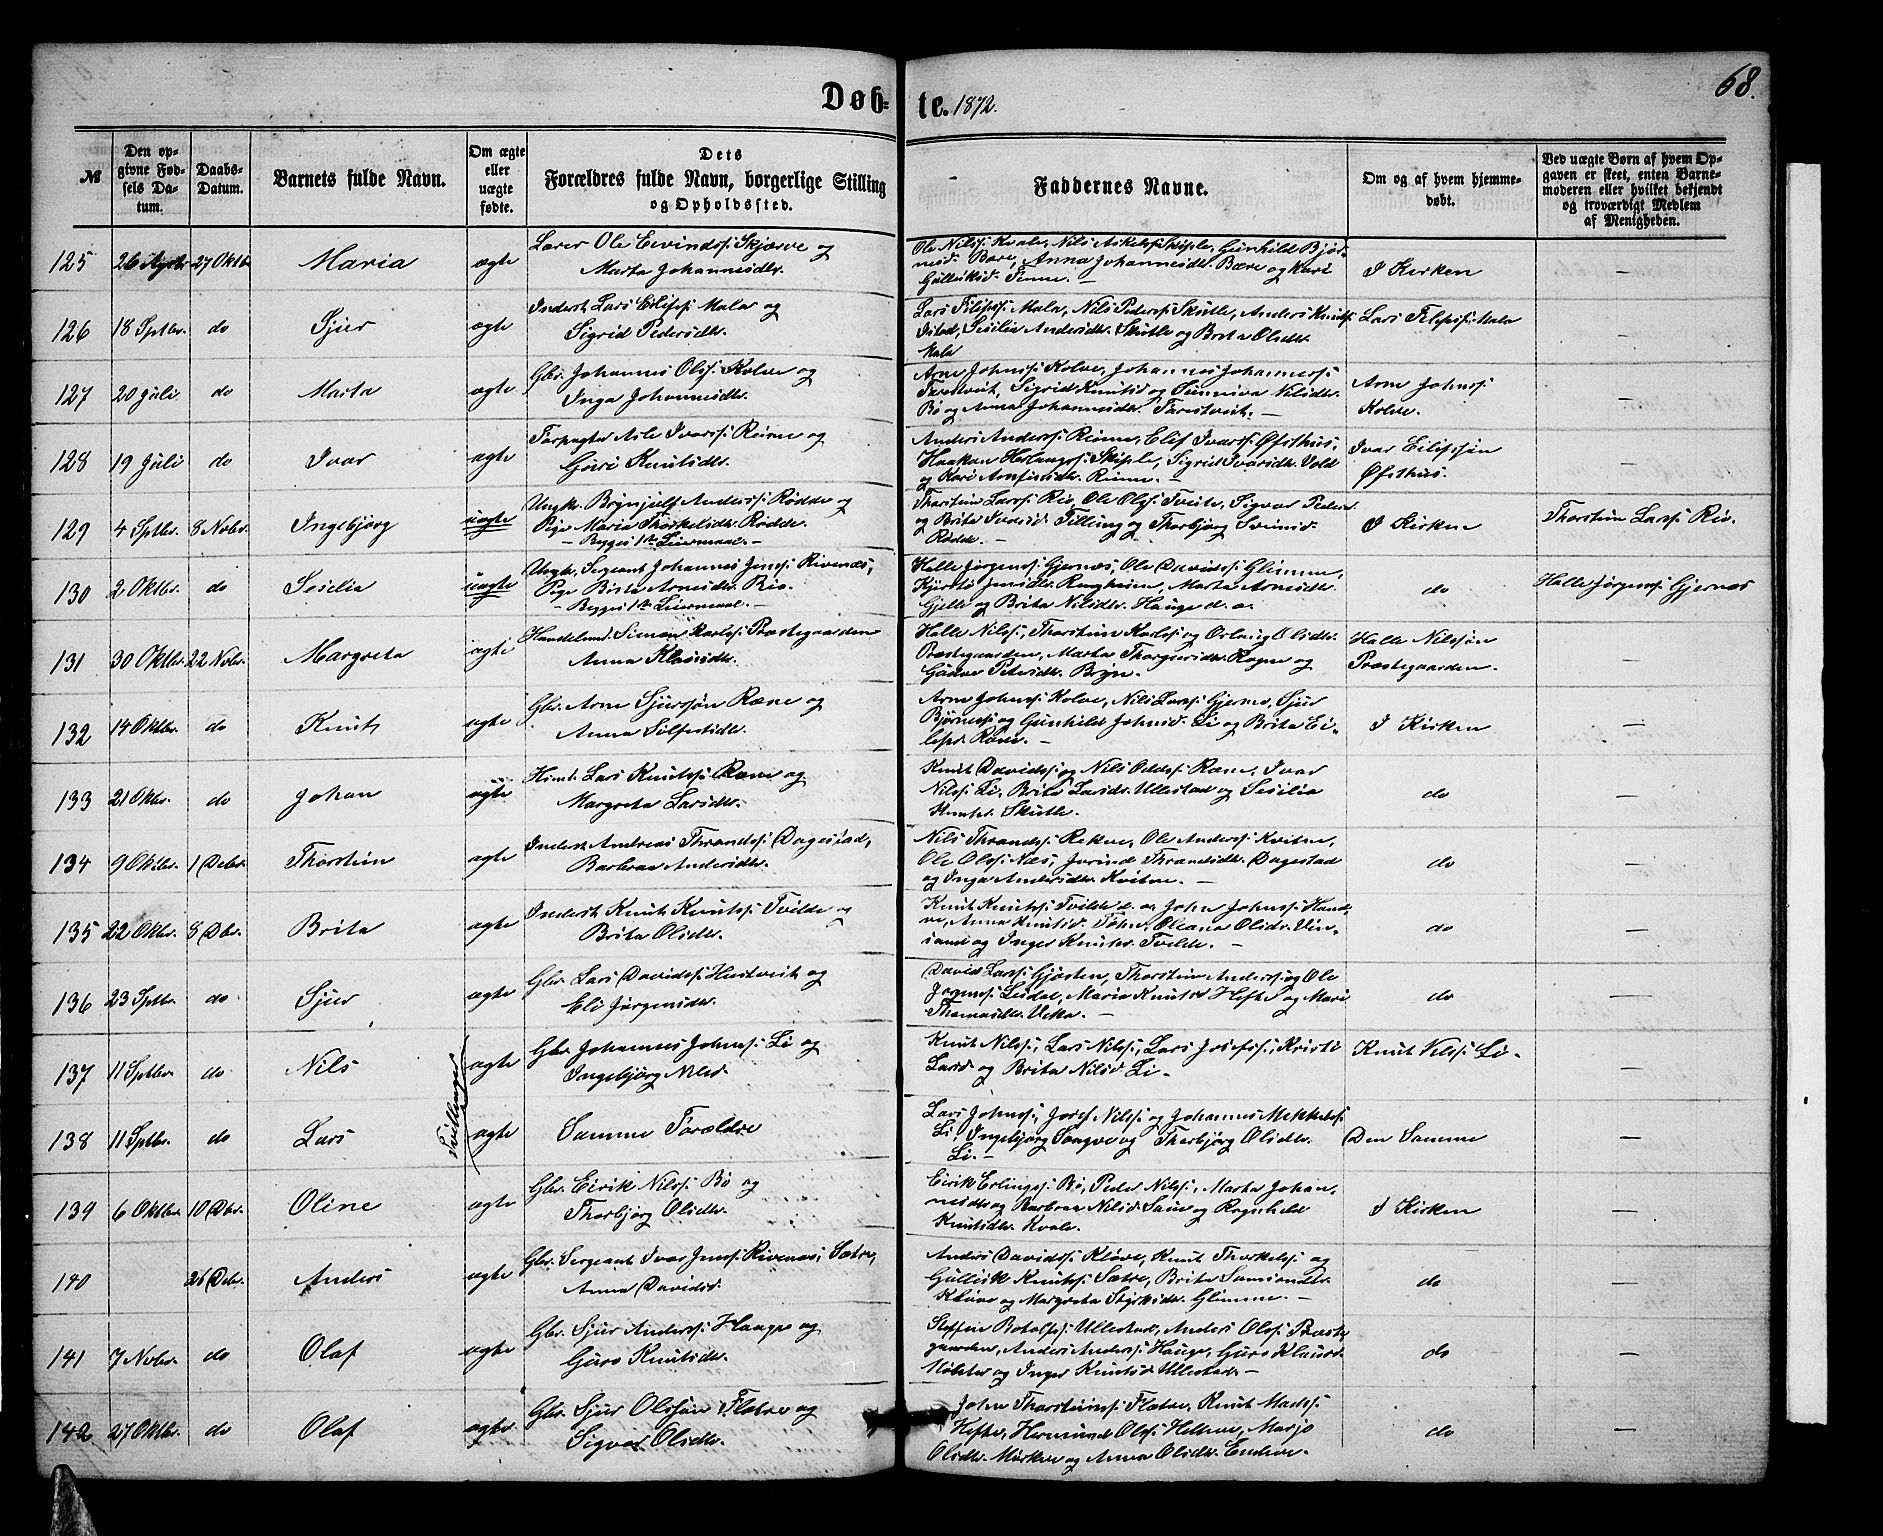 Døb-te. 1872.
68.
№
Den opgivne Fødsels Datum.
Daabs-Datum.
Barnets fulde Navn.
Om ægte eller uægte fødte.
Dets Forældres fulde Navn, borgerlige Stilling og Opholdssted.
Faddernes Navne.
Om og af hvem hjemmedøbt.
Ved uægte Børn af hvem Opgaven er skeet, enten Barnemoderen eller hvilket bekjendt og troværdigt Medlem af Menigheden.
125 26 27 Oktb Maria ægte Lærer Ole Eivindss: Skjærve og
Marta Johannesdtr.
Ole Nilss: Kvale, Nils Askelss: Skiple, Gunhild Bjør-
nsd. Bære, Anna Johannesdtr. Bære og Kari
Gulleiksd. Finne. –
I Kirken –
126 18 Septbr. do Sjur ægte Inderst Lars Eilifss: Mala og
Sigrid Pedersdtr.
Lars Filipss: Mala, Nils Pederss: Skutle, Anders Knuts:
Istad, Sesilia Andersdtr. Skutle og Brita Olsdtr.
Mala
Lars Filipss: Mala –
127 20 Juli do Marta ægte Gbr. Johannes Olss: Kolve og
Inga Johannesdtr.
Arne Johnss: Kolve, Johannes Johanness:
Tvestveit, Sigrid Knutsd og Sunneva Nilsdtr.
Bø og Anna Johannesdtr. –
Arne Johnss:
Kolve. –
128 19 Juli do Ivar ægte Forpagter Asle Ivarss: Rinne og
Guri Knutsdtr.
Anders Anderss: Rinne, Elif Ivarss: Øfsthus,
Haakon Herlaugss: Skiple, Sigrid Ivarsdtr. Vold
og Kari Arnfinsdtr. Rinne. –
Ivar Eilifssøn
Øfsthus. –
129 4 Septbr. 8 Novbr. Ingebjørg uægte Ungk. Brynjulf Anderss: Rødde og
Pige Maria Thorkelsdtr. Rødde.
– Begges 1te Leiermaal. –
Thorstein Larss: Rio, Ole Olss: Tveite, Sigvar Peders
og Brita Ivarsd. Tillung og Thorbjørg Sveinsd.
Rødde. –
I Kirken Thorstein Larss: Rio.
130 2 Oktbr. do Sesilia uægte Ungk. Sergeant Johannes Jenss: Rivenæs,
Pige Brita Arnesdtr. Rio.
– Begges 1te Leiermaal. –
Halle Jørgenss: Gjernæs, Ole Davidss: Glimme,
Kjersti Jensdtr. Rongheim, Marta Arnesdtr.
Gjelle og Brita Nilsdtr. Hauge d. æ.
do Halle Jørgenss: Gjernæs
131 30 Oktbr. 22 Novbr. Margreta ægte Handelsmd. Simon Karlss: Præstegaarden
Anna Klausdtr.
Halle Nilss:, Thorstein Karlss: og Oslaug Olsdtr.
Præstegaarden, Marta Thorgersdtr. Rogne og
Gudve Petersdtr. Bryn. –
Halle Nilssøn
Præstegaarden. –
132 14 Oktbr. do Knut ægte Gbr. Arne Sjurssøn Ræne og
Anna Silfestsdtr.
Arne Johnss: Kolve, Nils Larss: Gjerme, Sjur
Bjørness: og Gunhild Johnsd. Li og Brita Ei-
lefsd. Røne. –
I Kirken –
133 21 Oktbr. do Johan ægte Husmd. Lars Knutss: Ræne og
Margreta Larsdtr.
Knut Davidss: og Nils Oddss: Ræne, Ivar
Nilss: Li, Brita Larsdtr. Ullestad og Sesilia
Skutle.
do –
134 9 Oktbr. 1 Debr. Thorstein ægte Inderst Andreas Throndss: Dagestad,
Barbra Andersdtr.
Nils Thrandss: Rekve, Ole Anderss: Kvitne,
Ole Olss: Næs, Jorind Thrandsdtr. Dagestad
og Inga Andersdtr. Kvitne. –
do –
135 22 Oktbr. 8 Dbr. Brita ægte Inderst Knut Knutss: Tvilde og
Brita Olsdtr.
Knut Knutss: Tvilde d. æ, John Johnss: Hand-
ve, Anna Knutsd. Oleana Olsdr. Vin-
sand og Inger Knutsdr. Tvilde. –
do –
136 23 Septbr. do Sjur ægte Gbr. Lars Davidss: Hustveit og
Eli Jørgensdtr.
David Larss: Gjøsten, Thorstein Anderss: og Ole
Jørgenss: Leidal, Maria Knutsd Hefte og Mari
Thomasdtr. –
do –
137 11 Septbr. do Nils Tvillinger ægte Gbr. Johannes Johnss: Li og
Ingebjørg Nilsd.
Knut Nilss:, Lars Nilss:, Lars Josefss:, Kristi
Larsd og Brita Nilsd. Li –
Knut Nilss: Li. –
138 11 Septbr. do Lars ægte Samme Forældre
Lars Johnss:, Josef Nilss: og Johannes Mikkelss:
Li, Ingebjørg og Thorbjørg Olsdtr.
Li. –
Den Samme –
139 6 Oktbr. 10 Dbr. Oline ægte Gbr. Eirik Nilss: Bø og
Thorbjørg Olsdtr.
Eirik Erlingss: Bø, Peder Nilss:, Marta Johan-
nesdtr og Barbraa Nilsd. Saue og Ragnhild
Knutsdtr. Kvale.
I Kirken –
140 26 Debr. Anders ægte Gbr. Sergeant Ivar Jenss: Rivenæs, Sætre,
Anna Davidsd.
Anders Davidss: Kløve, Knut Thorkelss: og
Gullik Knutss: Sætre, Brita
Kløve og Margreta Styrksdr. Glimme. –
do –
141 7 Novbr. do Olaf ægte Gbr. Sjur Anderss: Hauge og
Guro Knutsdtr.
Steffen Botolfss: Ullestad, Anders Olss: Præste-
gaarden, Anders Anderss: Hauge, Guro Klausd.
og Inger Knutsd. Ullestad. –
do –
142 27 Oktbr. do Olaf ægte Gbr. Sjur Olssøn Flatre og
Sigvor Olsdtr.
John Thorsteinss: Flatre, Knut Madss:
Hefte, Hermund Olss: Hellene, Marjo
Olsdtr. Mørkve og Anna Olsdtr. Endeve.
do –